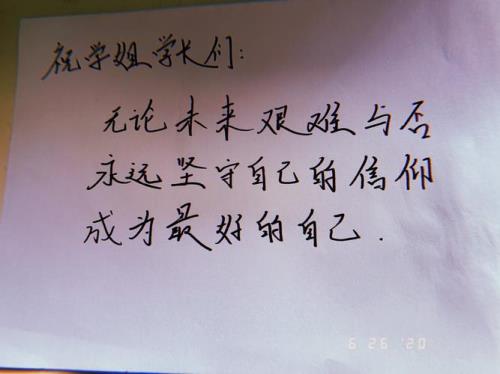 祝学姐学长们:
无论未来艰难与否
永远坚守自己的信仰
成为最好的自己.
6 26 '20